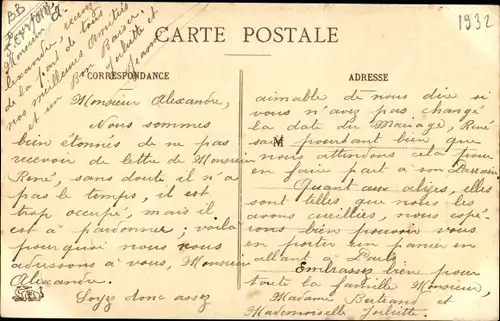 1932
CARTE POSTALE
CORRESPONDANCE
ADRESSE
Monsieur Alexandre,
Nous sommes
bien étonnés de ne pas
recevoir de lettre de Monsieur
René, sans doute il n'a
pas le temps, il est
trop occupé, mais il
est à pardonner; voilà
pourquoi nous nous
adressons à vous, Monsieur
Alexandre.
Soyez donc assez
aimable de nous dire si
vous n'avez pas changé
la date du Mariage, René
sait pourtant bien que
M
nous attendons cela pour
en faire part à son Parrain.
Quant aux alizes, elles
sont telles que nous les
avons cueillies, nous espé-
rons bien pouvoir vous
en porter un panier en
allant à Paris
Embrassez bien pour
toute la famille Monsieur,
Madame Bertrand et
Mademoiselle Juliette.
BB
Monsieur
Alexandre, recevez
de la part de tous
nos meilleures Amitiés
et un Bon Baiser.
Juliette et